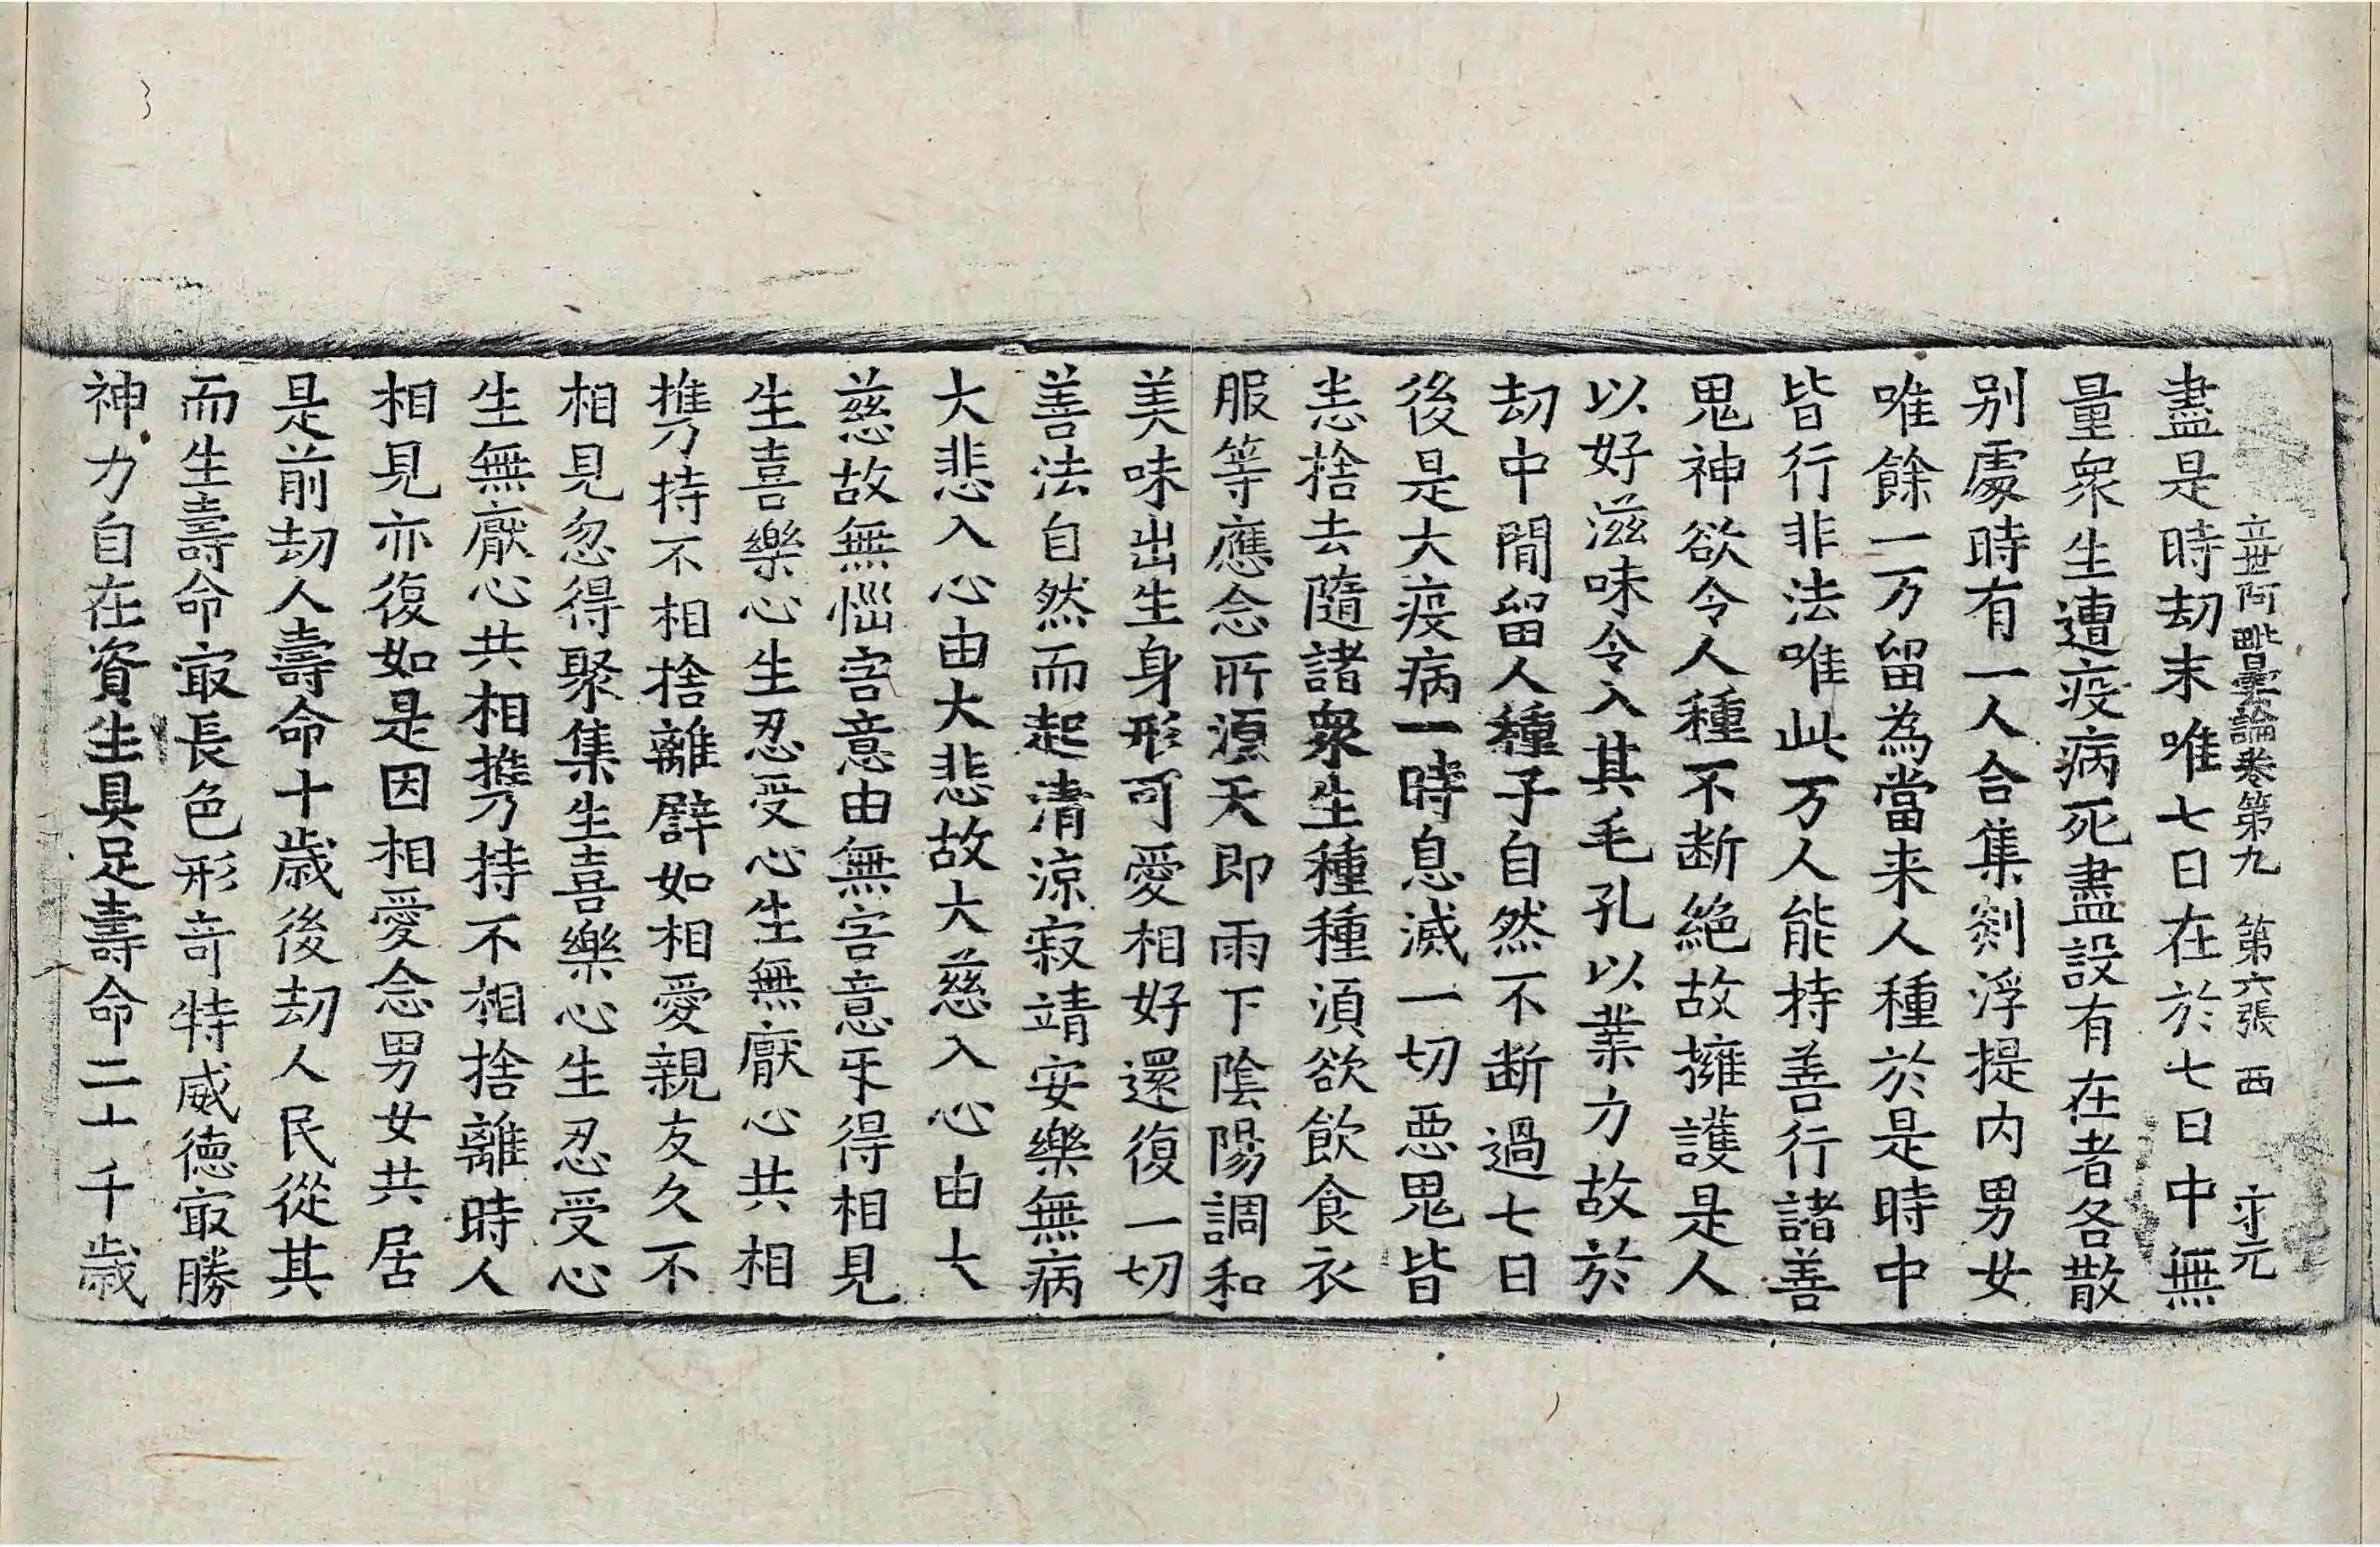 立世阿毗曇論卷第九　第六張　西　守元
盡是時劫末唯七日在於七日中無
量衆生遭疫病死盡設有在者各散
別處時有一人合集剡浮提內男女
唯餘一万留為當来人種於是時中
皆行非法唯此万人能持善行諸善
鬼神欲令人種不断絕故擁護是人
以好滋味令入其毛孔以業力故於
劫中閒留人種子自然不断過七日
後是大疫病一時息滅一切惡鬼皆
悉捨去隨諸衆生種種湏欲飲食衣
服等應念所湏天即雨下陰陽調和
美味出生身形可愛相好還復一切
善法自然而起清涼寂靖安樂無病
大悲入心由大悲故大慈入心由大
慈故無惱害意由無害意互得相見
生喜樂心生忍受心生無厭心共相
攜持不相捨離譬如相愛親友久不
相見忽得聚集生喜樂心生忍受心
生無厭心共相攜持不相捨離時人
相見亦復如是因相愛念男女共居
是前劫人壽命十歲後劫人民從其
而生壽命㝡長色形竒特威德㝡勝
神力自在資生具足壽命二十千歲